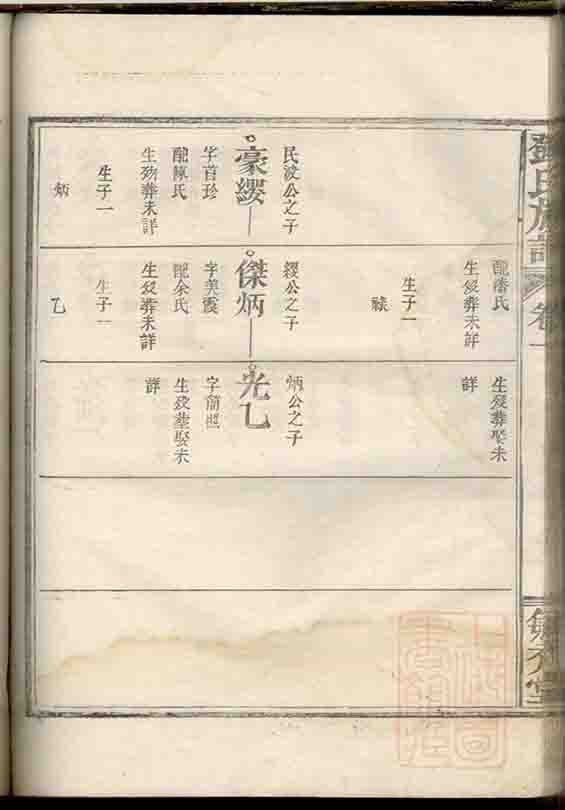 鄧氏族譜
卷一
民波公之子
豪纓
字首珍
配陳氏
生歿葬未詳
生子一
炳
配潘氏
生歿葬未詳
生子一
祿
纓公之子
傑炳
字美霞
配余氏
生歿葬未詳
生子一
乙
生歿葬娶未
詳
炳公之子
光乙
生歿葬娶未
詳